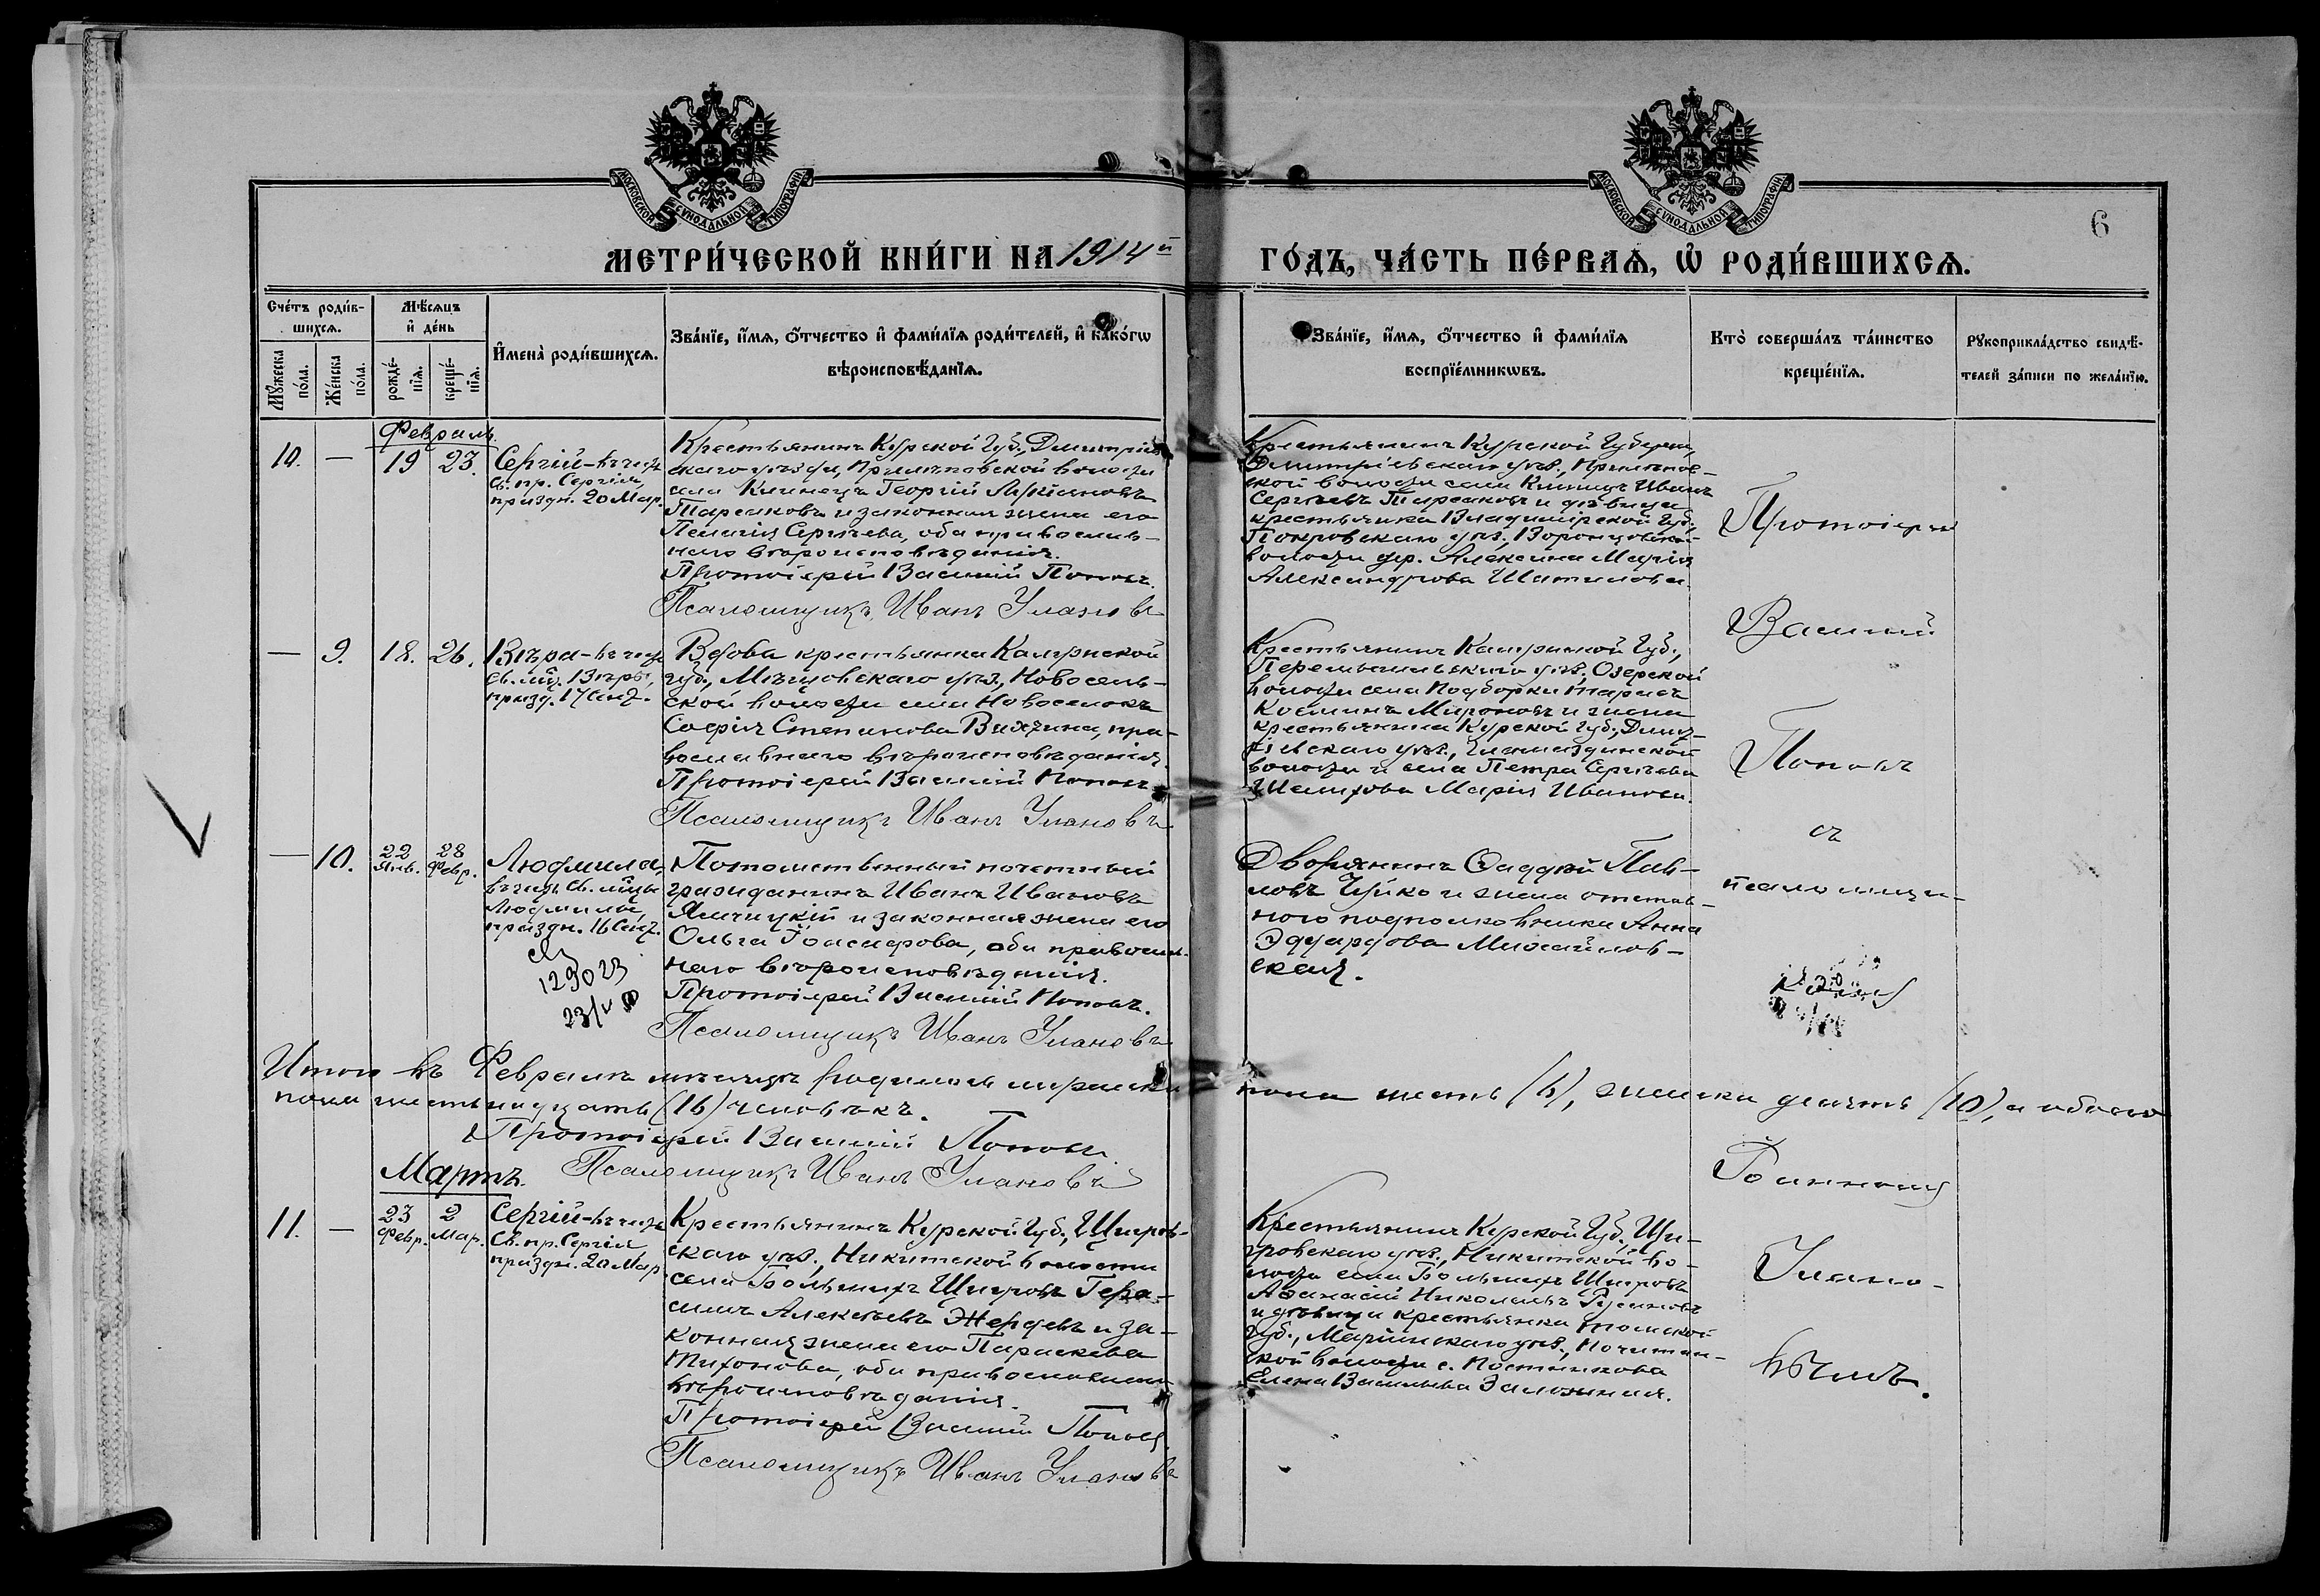 МОСКОВСКОЙ СѴНОДАЛЬНОЙ ТИПОГРАФІИ
МОСКОВСКОЙ СѴНОДАЛЬНОЙ ТИПОГРАФІИ
6
МЕТРИ́ЧЕСКОЙ КНИ́ГИ НА 1914й
ГО́ДЪ, ЧА́СТЬ ПЕ́РВАѦ, Ѡ҆ РОДИ́ВШИХСѦ.
Сче́тъ роди́в-
шихсѧ.
Мѣ́сѧцъ
и҆ де́нь
Мꙋ́жеска
по́ла.
Же́нска
по́ла.
рожде́-
нїѧ.
креще́-
нїѧ.
И҆мена̀ роди́вшихсѧ.
Зва́нїе, и҆́мѧ, ѻ҆́тчество и҆ фами́лїѧ роди́телей, и҆ како́гѡ
вѣроисповѣ́данїѧ.
Зва́нїе, и҆́мѧ, ѻ҆́тчество и҆ фами́лїѧ
воспрїе́мникѡвъ.
Кто̀ соверша́лъ та́инство
креще́нїѧ.
Рꙋкоприкла́дство свидѣ́-
телей за́писи по жела́нїю.
Февраль.
10.
—
19
23.
Сергій – въ честь
Св. пр. Сергія,
праздн. 20 Мар.
Крестьянинъ Курской Губ., Дмитріев-
скаго уѣзда, волости
села Клинецъ Георгій
и законная жена его
Пелагія Сергѣева, оба православ-
наго вѣроисповѣданія.
Протоіерей Василій Поповъ.
Псаломщикъ Иванъ Улановъ
Крестьянинъ Курской Губерніи,
Дмитріевскаго уѣз.,
ской волости села Клинецъ Иванъ
Сергѣевъ и дѣвица
крестьянка Владимірской Губ.,
Покровскаго уѣз., Воронцовской
волости дер. Алексина Марія
Александрова Шатилова.
Протоіерей
—
9.
18.
26.
Вѣра – въ честь
св. мц. Вѣры,
празд. 17 Сент.
Вдова крестьянка Калужской
губ., Мещовскаго уѣз., Новосель-
ской волости села Новоселокъ
Софія Степанова, пра-
вославнаго вѣроисповѣданія.
Протоіерей Василій Поповъ.
Псаломщикъ Иванъ Улановъ
Крестьянинъ Калужской Губ.,
Перемышльскаго уѣз., Озерской
волости села Подборки Тарасъ
Косминъ Мироновъ и жена
крестьянина Курской Губ., Дмит-
ріевскаго уѣз.,
волости и села Петра Сергѣева
Марія Иванова.
Василій
Поповъ
—
10.
22
Янв.
28
Февр.
Людмила,
въ честь Св. мцы
Людмилы,
праздн. 16 Сент.
129023
Потомственный почетный
гражданинъ Иванъ Ивановъ
и законная жена его
Ольга, оба православ-
наго вѣроисповѣданія.
Протоіерей Василій Поповъ.
Псаломщикъ Иванъ Улановъ
Дворянинъ Фаддей Пав-
ловъ и жена отстав-
ного подполковника Анна
Эдуардова Михайлов-
ская.
съ
псаломщи-
Итого въ Февралѣ мѣсяцѣ родилось мужска
пола шесть (6), женска десять (10), а обоего
пола шестнадцать (16) человѣкъ.
Протоіерей Василій Поповъ.
Псаломщикъ Иванъ Улановъ
Мартъ.
11.
—
23
Февр.
2
Мар.
Сергій – въ честь
Св. пр. Сергія
праздн. 20 Мар.
Крестьянинъ Курской Губ., Щигров-
скаго уѣз., Никитской волости
села Большихъ Щигровъ Гера-
симъ Алексѣевъ Жердевъ и за-
конная жена его Параскева
Тихонова, оба православнаго
вѣроисповѣданія.
Протоіерей Василій Поповъ
Псаломщикъ Иванъ Улановъ
Крестьянинъ Курской Губ., Щи-
гровскаго уѣз., Никитской во-
лости села Большихъ Щигровъ
Афанасій Николаевъ
и дѣвица крестьянка Томской
Губ., Маріинскаго уѣз., Почитан-
ской волости с. Постникова
Елена Васильева
Іоанномъ
Улано-
вымъ.